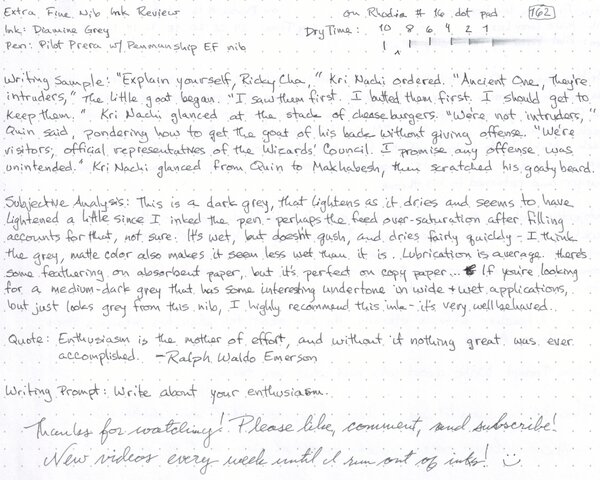 Extra Fine Nib Ink Review on Rhodia # 16 dot pad 162
Ink: Diamine Grey Dry Time: 10 8 6 4 2 1
Pen: Pilot Prera w/ Penmanship EF nib
Writing Sample: "Explain yourself, Ricky Cha," Kri Nachi ordered. "Ancient One, they're
intruders," The little goat began. "I saw them first. I butted them first. I should get to
keep them." Kri Nachi glanced at the stack of cheeseburgers. "We're not intruders,"
Quin said, pondering how to get the goat of his back without giving offense. "We're
visitors; official representatives of the Wizards' Council. I promise any offense was
unintended." Kri Nachi glanced from Quin to Makhabesh, then scratched his goaty beard.
Subjective Analysis: This is a dark grey, that lightens as it dries and seems to have
lightened a little since I inked the pen - perhaps the feed over-saturation after filling
accounts for that, not sure. It's wet, but doesn't gush, and dries fairly quickly - I think
the grey, matte color also makes it seem less wet than it is. Lubrication is average. there's
some feathering on absorbent paper, but it's perfect on copy paper... If you're looking
for a medium-dark grey that has some interesting undertone in wide + wet applications,
but just looks grey from this nib, I highly recommend this ink - it's very well behaved.
Quote: Enthusiasm is the mother of effort, and without it nothing great was ever
accomplished. -Ralph Waldo Emerson
Writing Prompt: Write about your enthusiasm.
Thanks for watching! Please like, comment, and subscribe!
New videos every week until I run out of inks!